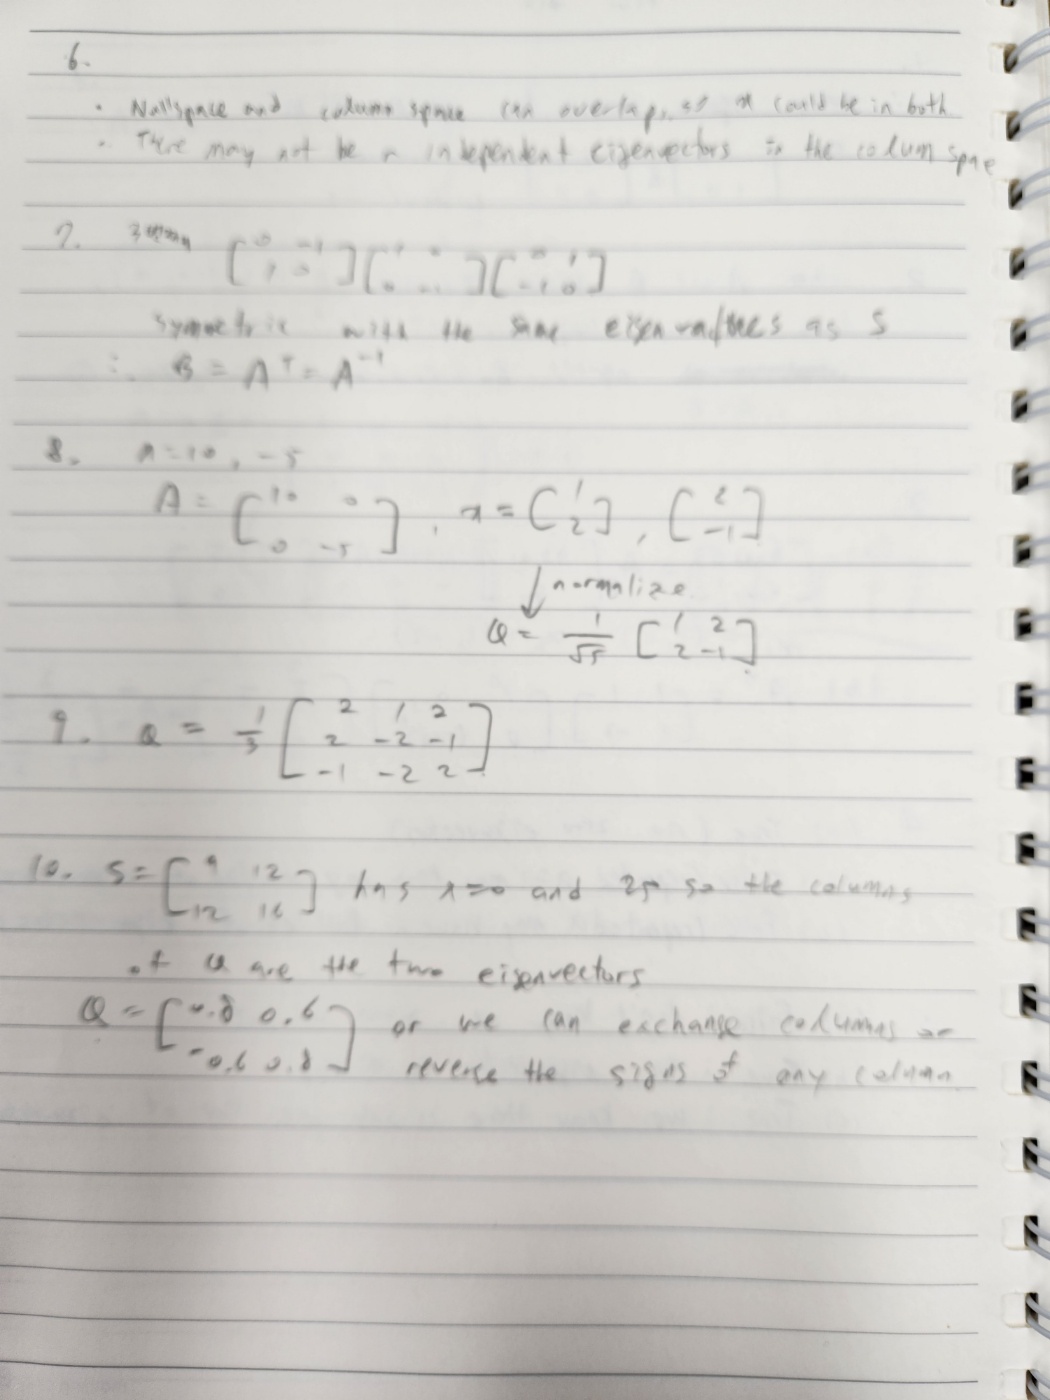 6.
· Nullspace and column space can overlap, so x could be in both
· There may not be r independent eigenvectors in the colum spae
7. [0 -1
1 0] [1 0
0 -1] [0 1
-1 0]
symmetric with the same eigenvalues as S
∴ B = A^T = A^-1
8. λ = 10, -5
Λ = [10 0
0 -5], x = [1
2], [2
-1]
↓ normalize
Q = 1/√5 [1 2
2 -1]
9. Q = 1/3 [2 1 2
2 -2 -1
-1 -2 2]
10. S = [9 12
12 16] has λ=0 and 25 so the columns
of Q are the two eigenvectors
Q = [0.8 0.6
-0.6 0.8] or we can exchange columns or
reverse the signs of any column